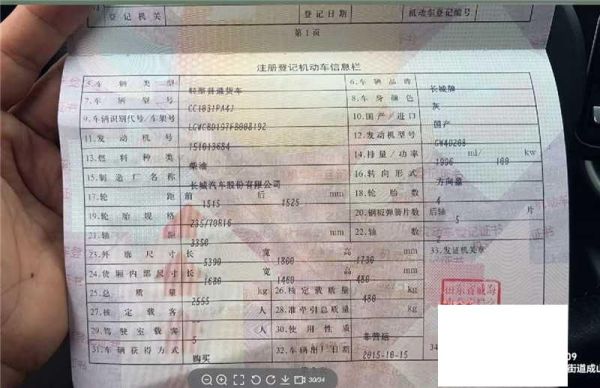 登记机关 登记日期 机动车登记编号
第1页
注册登记机动车信息栏
5.车辆类型 轻型普通货车 6.车辆品牌 长城牌
7.车辆型号 CC1031PA4J 8.车身颜色 灰
9.车辆识别代号/车架号 10.国产/进口 国产
11.发动机号 12.发动机型号 GW4D20B
13.燃料种类 柴油 14.排量/功率 1996 ml/ kw
15.制造厂名称 长城汽车股份有限公司 16.转向形式 方向盘
17.轮距 前 1515 后 1525 mm 18.轮胎数 4
19.轮胎规格 235/70R16 20.钢板弹簧片数 后轴 5 片
21.轴距 3350 mm 22.轴数
23.外廓尺寸 长 5390 宽 1800 高 1730 mm 33.发证机关章
24.货厢内部尺寸 长 1680 宽 1460 高 480 mm
25.总质量 2555 kg 26.核定载质量 480 kg
27.核定载客 人 28.准牵引总质量 kg
29.驾驶室载客 5 人 30.使用性质 非营运
31.车辆获得方式 购买 32.车辆出厂日期 2015-10-15 34
30/34
09
街道成山